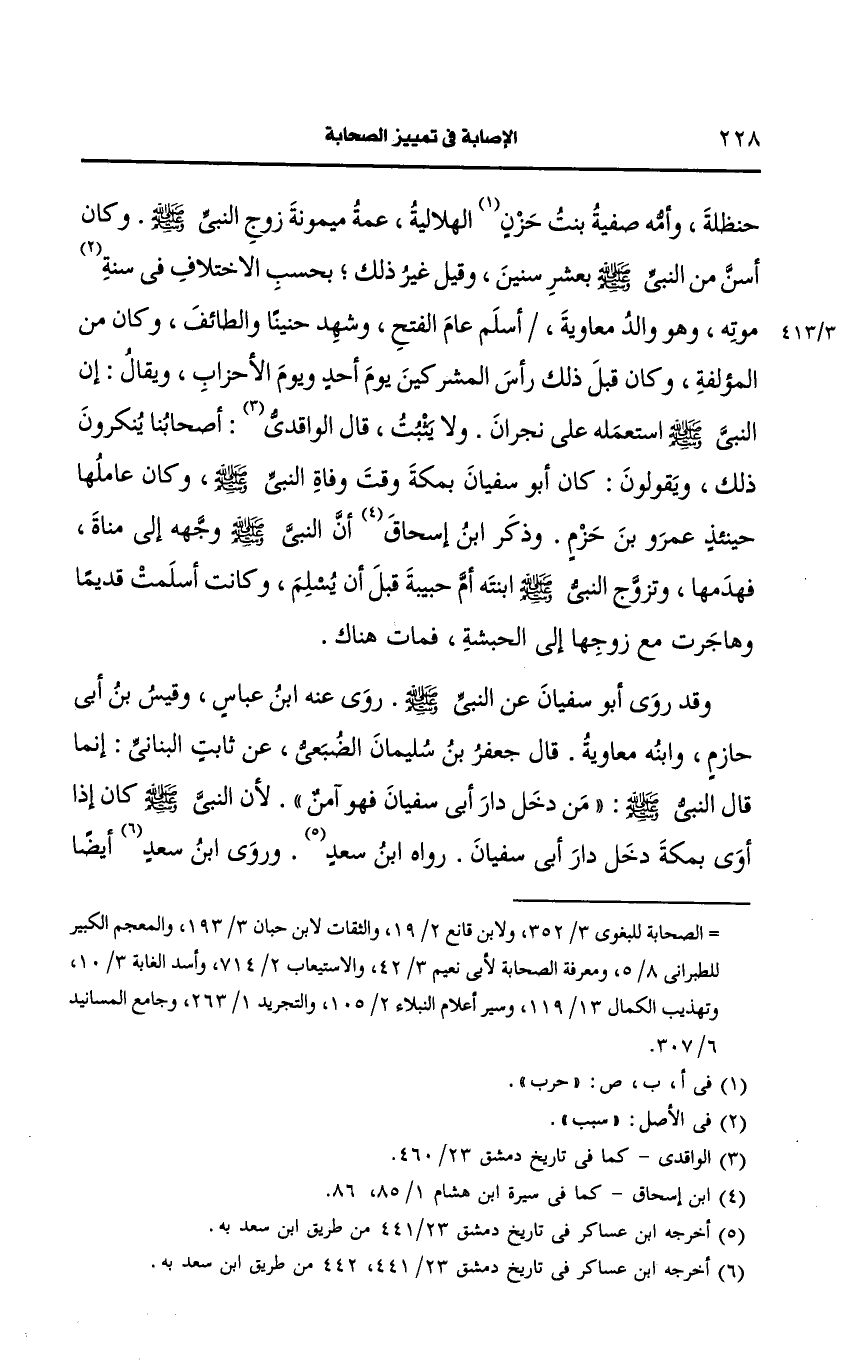 ٢٢٨ الإصابة فى تمييز الصحابة
حنظلةَ ، وأمُّه صفيةُ بنتُ حَزْنٍ(١) الهلاليةُ ، عمةُ ميمونةَ زوجِ النبىِّ ﷺ . وكان
أسنَّ من النبىِّ ﷺ بعشرِ سنينَ ، وقيل غيرُ ذلك ؛ بحسبِ الاختلافِ فى سنةِ(٢)
٤١٣/٣ موتِه ، وهو والدُ معاويةَ ، / أسلَم عامَ الفتحِ ، وشهِد حنينًا والطائفَ ، وكان من
المؤلفةِ ، وكان قبلَ ذلك رأسَ المشركينَ يومَ أحدٍ ويومَ الأحزابِ ، ويقالُ : إن
النبىَّ ﷺ استعمَله على نجرانَ . ولا يَثْبُتُ ، قال الواقدىُّ(٣) : أصحابُنا يُنكرونَ
ذلك ، ويَقولونَ : كان أبو سفيانَ بمكةَ وقتَ وفاةِ النبىِّ ﷺ ، وكان عاملُها
حينئذٍ عمرَو بنَ حَزْمٍ . وذكَر ابنُ إسحاقَ(٤) أنَّ النبىَّ ﷺ وجَّهه إلى مناةَ ،
فهدَمها ، وتزوَّج النبىُّ ﷺ ابنتَه أمَّ حبيبةَ قبلَ أن يُسْلِمَ ، وكانت أسلَمتْ قديمًا
وهاجَرت مع زوجِها إلى الحبشةِ ، فمات هناك .
وقد روَى أبو سفيانَ عن النبىِّ ﷺ . روَى عنه ابنُ عباسٍ ، وقيسُ بنُ أبى
حازمٍ ، وابنُه معاويةُ . قال جعفرُ بنُ سُليمانَ الضُّبَعىُّ ، عن ثابتٍ البنانىِّ : إنما
قال النبىُّ ﷺ : « مَن دخَل دارَ أبى سفيانَ فهو آمنٌ » . لأن النبىَّ ﷺ كان إذا
أوَى بمكةَ دخَل دارَ أبى سفيانَ . رواه ابنُ سعدٍ(٥) . وروَى ابنُ سعدٍ(٦) أيضًا
= الصحابة للبغوى ٣/ ٣٥٢، ولابن قانع ٢/ ١٩، والثقات لابن حبان ٣/ ١٩٣، والمعجم الكبير
للطبرانى ٨/ ٥، ومعرفة الصحابة لأبى نعيم ٣/ ٤٢، والاستيعاب ٢/ ٧١٤، وأسد الغابة ٣/ ١٠،
وتهذيب الكمال ١٣/ ١١٩، وسير أعلام النبلاء ٢/ ١٠٥، والتجريد ١/ ٢٦٣، وجامع المسانيد
٦/ ٣٠٧.
(١) فى أ، ب، ص: « حرب » .
(٢) فى الأصل: « سبب » .
(٣) الواقدى - كما فى تاريخ دمشق ٢٣/ ٤٦٠.
(٤) ابن إسحاق - كما فى سيرة ابن هشام ١/ ٨٥، ٨٦.
(٥) أخرجه ابن عساكر فى تاريخ دمشق ٢٣/ ٤٤١ من طريق ابن سعد به .
(٦) أخرجه ابن عساكر فى تاريخ دمشق ٢٣/ ٤٤١، ٤٤٢ من طريق ابن سعد به .